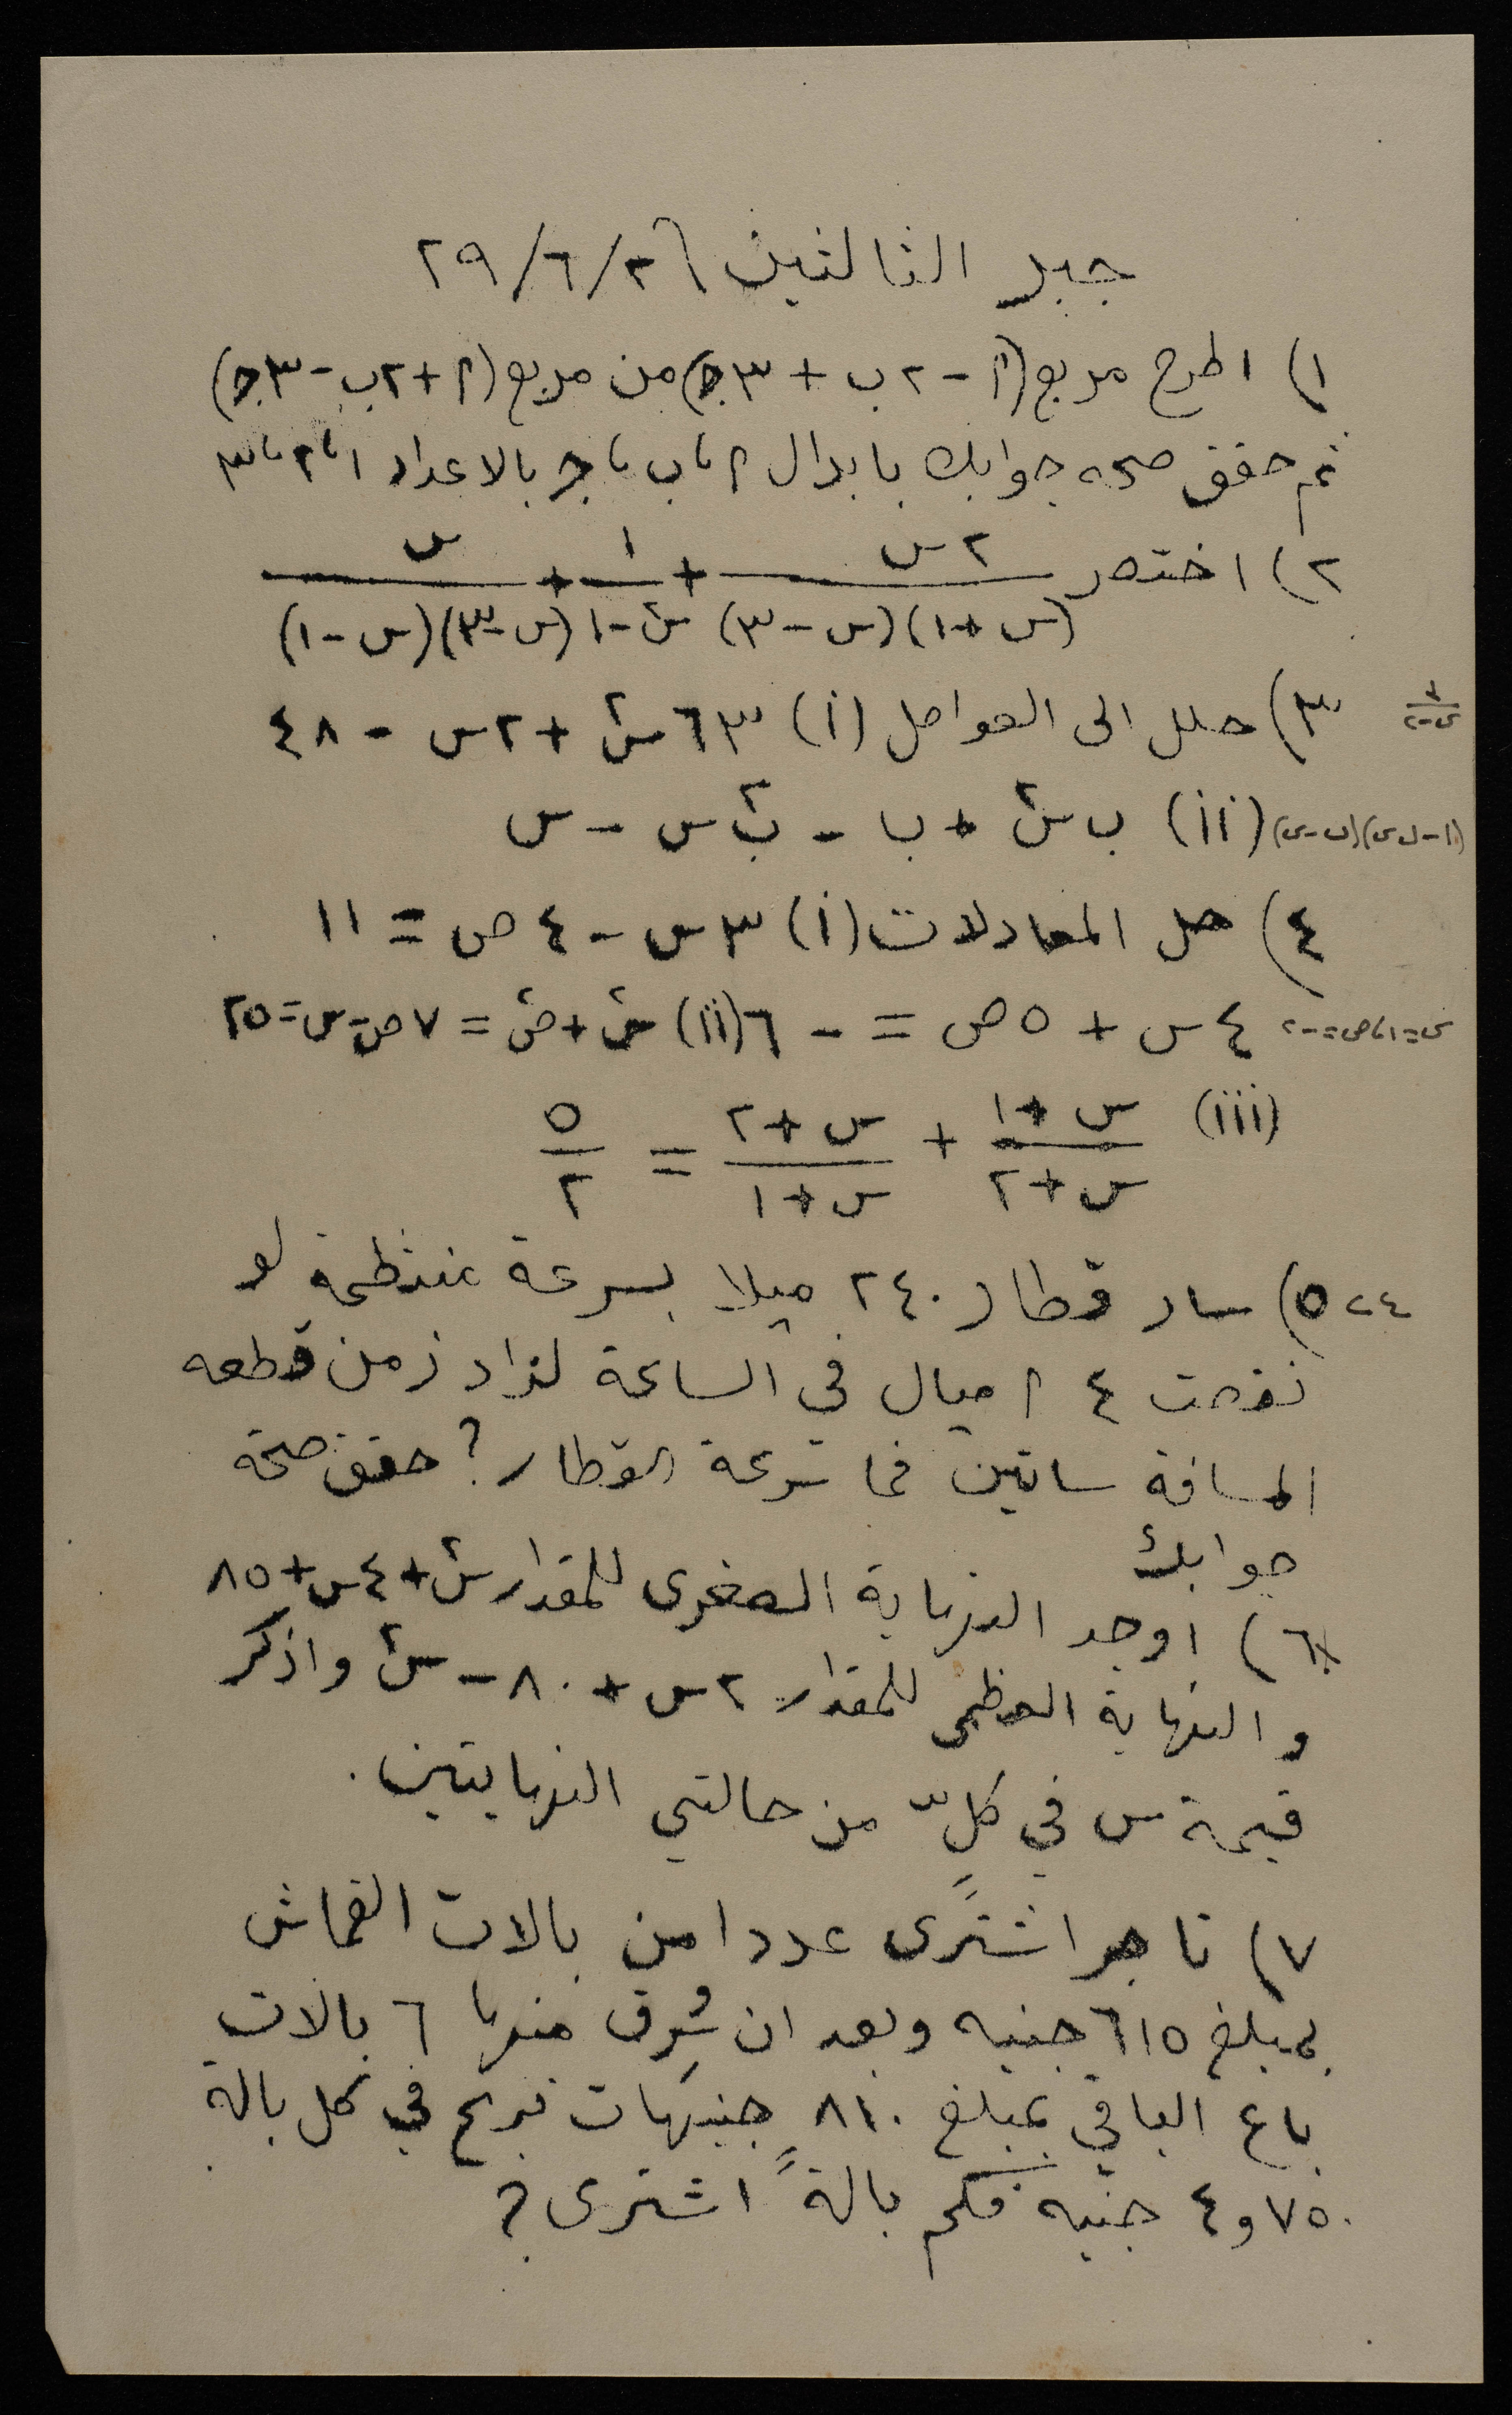 جبر الثالثين ٢٩/٦/٢٦
١) اطرح مربع (أ - ٢ب + ٣ج) من مربع (أ + ٢ب - ٣ج)
ثم حقق صحه جوابك بابدال أ، ب، ج بالاعداد ١، ٢، ٣
٢) اختصر ٢س/(س+١)(س-٣) + ١/س٢-١ + س/(س-٣)(س-١)
٣) حلل الى العوامل (i) ٦٣س٢ + ٢س - ٤٨
(ii) ب س٢ + ب - ب٢س - س
٤) حل المعادلات (i) ٣س - ٤ص = ١١
٤س + ٥ص = -٦ (ii) س٢ + ص٢ = ٧ص - س = ٢٥
س=١، ص=-٢
(iii) س+١/س+٢ + س+٢/س+١ = ٥/٢
٢٤
٥) سار قطار ٢٤٠ ميلا بسرعة منتظمة لو
نقصت ٤ أميال في الساعة لزاد زمن قطعه
المسافة ساعتين فما سرعة القطار؟ حقق صحة
جوابك
٦) اوجد النهاية الصغرى للمقدار س٢+٤س+٨٥
والنهاية العظمى للمقدار ٢س+٨٠-س٢ واذكر
قيمة س في كلٍّ من حالتي النهايتين.
٧) تاجر اشترى عددا من بالات القماش
بمبلغ ٦١٥ جنيه وبعد ان سُرِق منها ٦ بالات
باع الباقي بمبلغ ٨١٠ جنيهات فربح في كل بالة
٤و٧٥٠ جنيه فكم بالةً اشترى؟